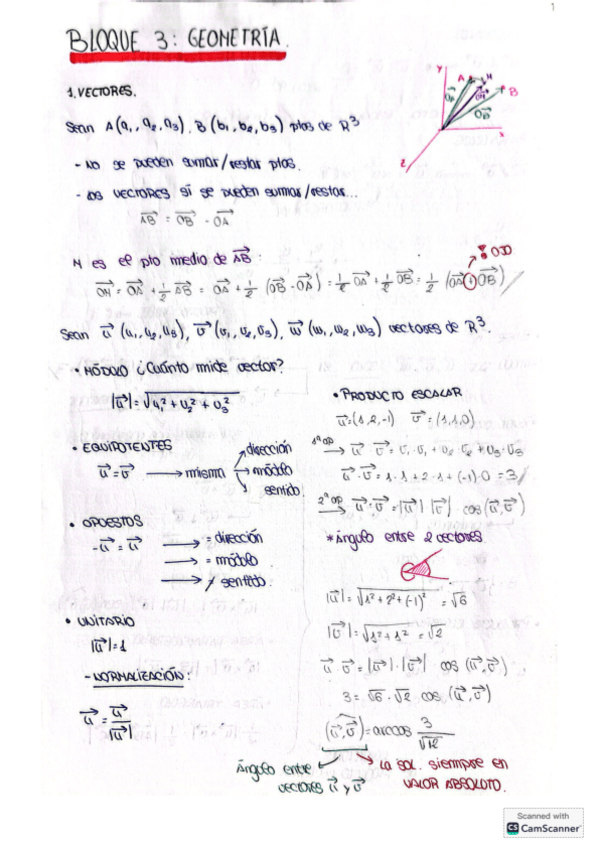 1
BLOQUE 3: GEOMETRÍA.
1. VECTORES.
Y
A
M
B
OA
OM
OB
X
Z
Sean A(a₁, a₂, a₃), B(b₁, b₂, b₃) ptos de R³
- NO se pueden sumar/restar ptos.
- LOS VECTORES sí se pueden sumar/restar...
AB⃗ = OB⃗ - OA⃗
M es el pto medio de AB⃗ :
OM⃗ = OA⃗ + 1/2 AB⃗ = OA⃗ + 1/2 (OB⃗ - OA⃗) = 1/2 OA⃗ + 1/2 OB⃗ = 1/2 (OA⃗ + OB⃗)
OJO
Sean u⃗ (u₁, u₂, u₃), v⃗ (v₁, v₂, v₃), w⃗ (w₁, w₂, w₃) vectores de R³.
• MÓDULO ¿Cuánto mide vector?
|u⃗| = √u₁² + u₂² + u₃²
• EQUIPOTENTES
u⃗ = v⃗ → misma
dirección
módulo
sentido
• OPUESTOS
-u⃗ = u⃗
→ = dirección
→ = módulo
→ ≠ sentido.
• UNITARIO
|u⃗| = 1
- NORMALIZACIÓN:
u⃗ = u⃗/|u⃗|
• PRODUCTO ESCALAR
u⃗ = (1, 2, -1) v⃗ = (1, 1, 0)
1ª op → u⃗ · v⃗ = u₁ · v₁ + u₂ · v₂ + u₃ · v₃
u⃗ · v⃗ = 1 · 1 + 2 · 1 + (-1) · 0 = 3
2ª op → u⃗ · v⃗ = |u⃗| · |v⃗| cos (u⃗, v⃗)
* Ángulo entre 2 vectores
|u⃗| = √1² + 2² + (-1)² = √6
|v⃗| = √1² + 1² = √2
u⃗ · v⃗ = |u⃗| · |v⃗| cos (u⃗, v⃗)
3 = √6 · √2 cos (u⃗, v⃗)
(u⃗, v⃗) = arccos 3/√12
Ángulo entre vectores u⃗ y v⃗
La sol. siempre en VALOR ABSOLUTO.
Scanned with
CS CamScanner